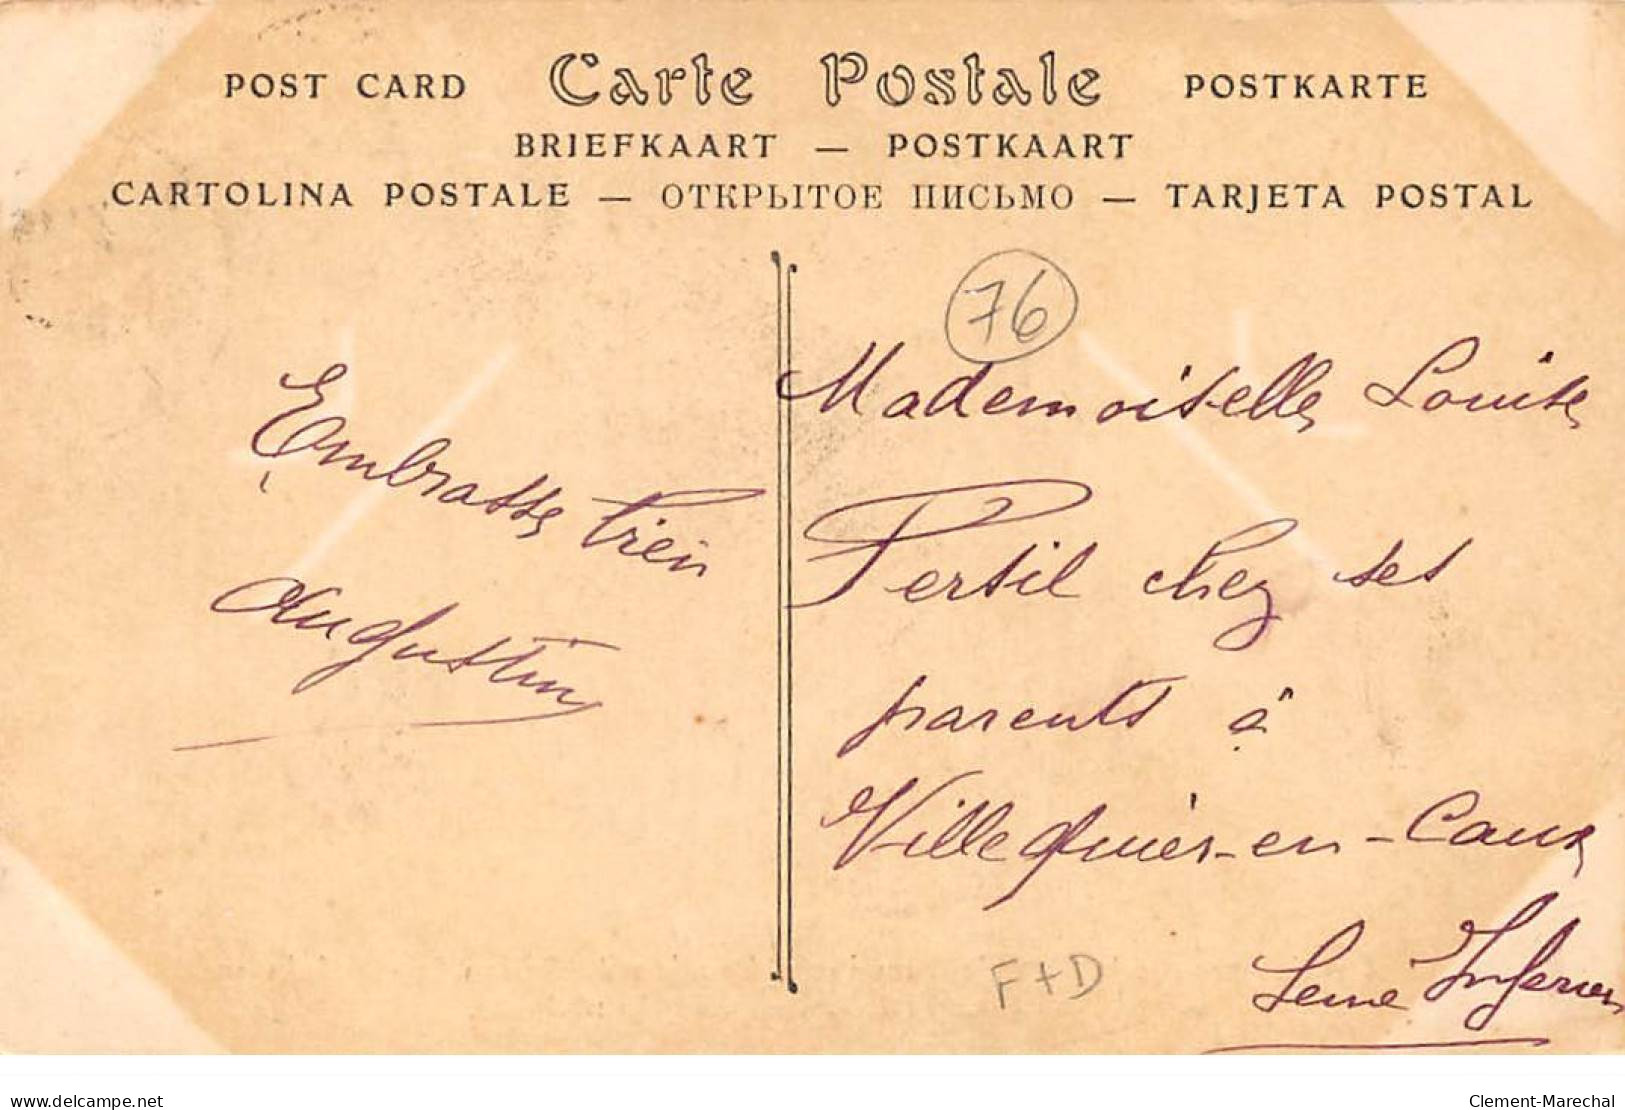 POST CARD Carte Postale POSTKARTE
BRIEFKAART — POSTKAART
CARTOLINA POSTALE — ОТКРЫТОЕ ПИСЬМО — TARJETA POSTAL
Embrasse bien
Augustin
76
Mademoiselle Louise
Persil chez ses
parents à
Villequier-en-Caux
Seine Inférieure
F+D
delcampe.net
Clement-Marechal